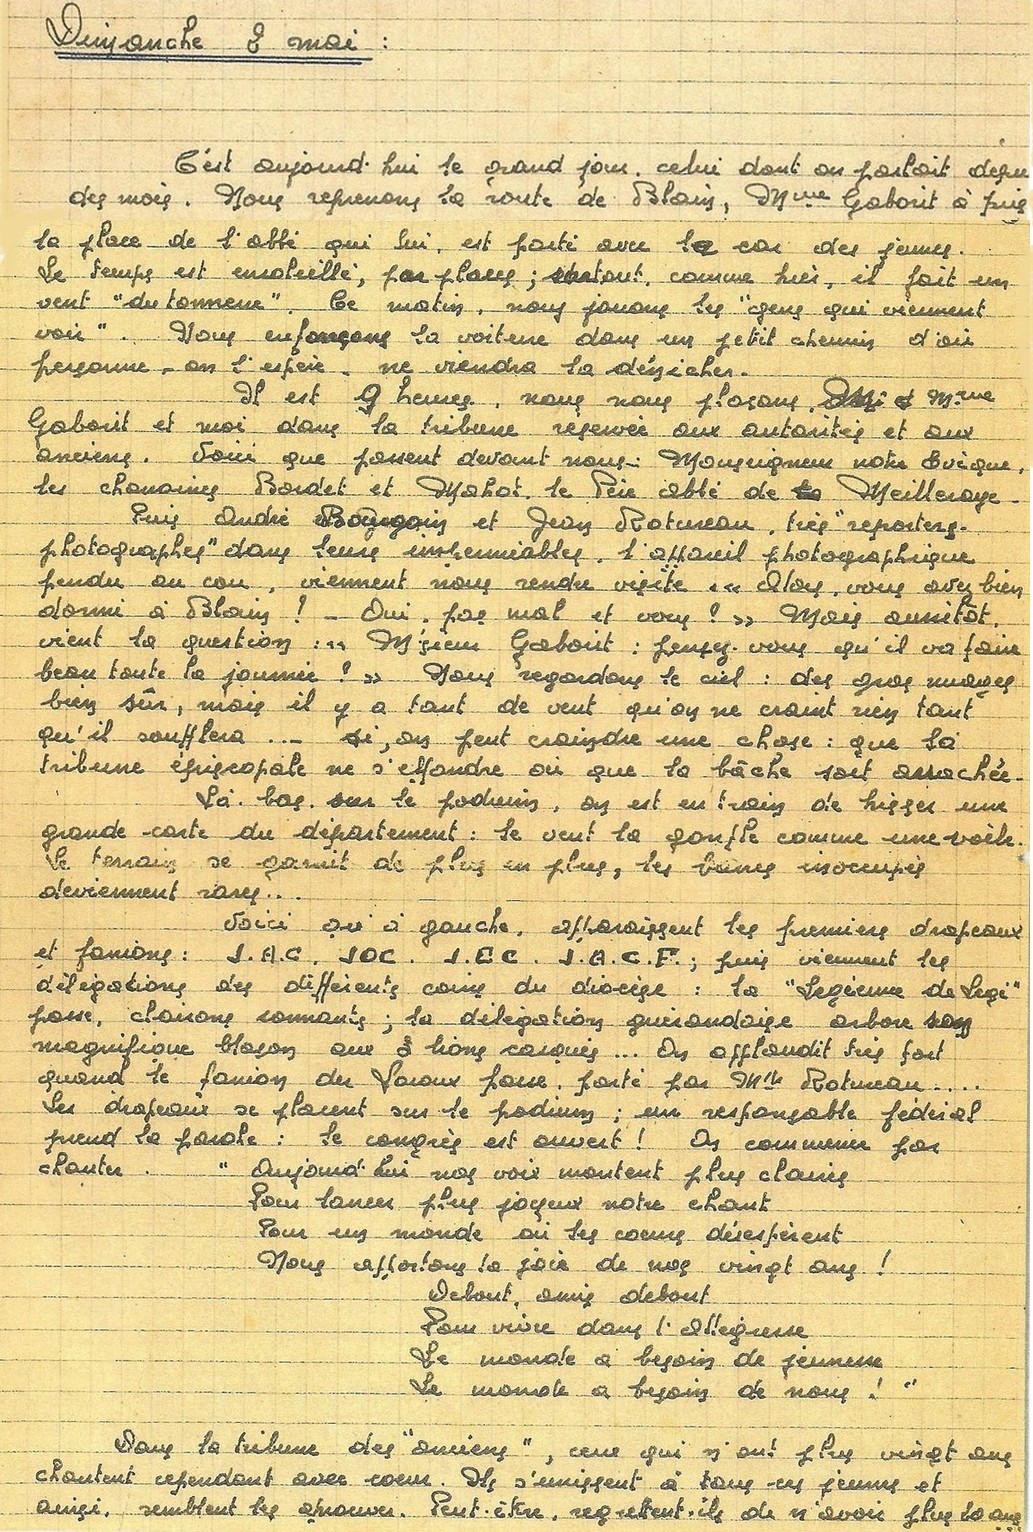 Dimanche 8 mai :
C'est aujourd'hui le grand jour, celui dont on parlait depuis
des mois. Nous reprenons la route de Blain, Mme Gaborit a pris
la place de l'abbé qui lui, est parti avec le car des jeunes.
Le temps est ensoleillé, par places ; surtout, comme hier, il fait un
vent "du tonnerre". Ce matin, nous jouons les "gens qui viennent
voir". Nous enfonçons la voiture dans un petit chemin d'où
personne - on l'espère - ne viendra la dénicher.
Il est 9 heures, nous nous plaçons, Mr et Mme
Gaborit et moi dans la tribune réservée aux autorités et aux
anciens. Voici que passent devant nous : Monseigneur notre Evèque,
les chanoines Bordet et Mahot, le Père abbé de Meilleraye -
Puis André Bourgoin et Jean Rotureau, très "reporters-
photographes" dans leurs imperméables, l'appareil photographique
pendu au cou, viennent nous rendre visite « Alors, vous avez bien
dormi à Blain ? - Oui, pas mal et vous ? » Mais aussitôt,
vient la question : « M'sieur Gaborit : pensez-vous qu'il va faire
beau toute la journée ? » Nous regardons le ciel : des gros nuages
bien sûr, mais il y a tant de vent qu'on ne craint rien tant
qu'il soufflera ... si, on peut craindre une chose : que la
tribune épiscopale ne s'effondre où que la bâche soit arrachée.
Là-bas, sur le podium, on est en train de hisser une
grande carte du département : le vent la gonfle comme une voile.
Le terrain se garnit de plus en plus, les bancs inoccupés
deviennent rares...
Voici qu'à gauche, apparaissent les premiers drapeaux
et fanions : J.A.C, JOC. J.EC. J.A.C.F. ; puis viennent les
délégations des différents coins du diocèse : la "Légérienne de Legé"
passe, clairons sonnants ; la délégation guérandaise arbore son
magnifique blason aux 3 lions casqués ... On applaudit très fort
quand le fanion du Saroux passe, porté par Mlle Rotureau ....
Les drapeaux se placent sur le podium ; un responsable fédéral
prend la parole : le congrès est ouvert ! On commence par
chanter. " Aujourd'hui nos voix montent plus claires
Pour lancer plus joyeux notre chant
Pour un monde où les coeurs désespèrent
Nous apportons la joie de nos vingt ans !
Debout, amis debout
Pour vivre dans l'Allégresse
Le monde a besoin de jeunesse
Le monde a besoin de nous ! "
Dans la tribune des "anciens", ceux qui n'ont plus vingt ans
chantent cependant avec coeur. Ils s'unissent à tous ces jeunes et
ainsi, semblent les épauler. Peut-être, regrettent-ils de n'avoir plus 20 ans